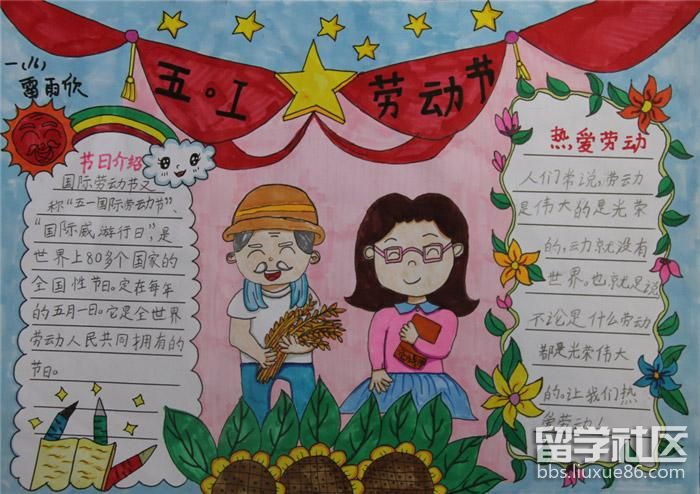 一(1)
雷雨欣
五。工 劳动节
节日介绍
国际劳动节又
称“五一国际劳动节”、
“国际威游行日”,是
世界上80多个国家的
全国性节日。定在每年
的五月一日。它是全世界
劳动人民共同拥有的
节日。
热爱劳动
人们常说,劳动
是伟大的是光荣
的,动就没有
世界。也就是说
不论是什么劳动
都是光荣伟大
的。让我们热
爱劳动!
留学社区
bbs.liuxue86.com